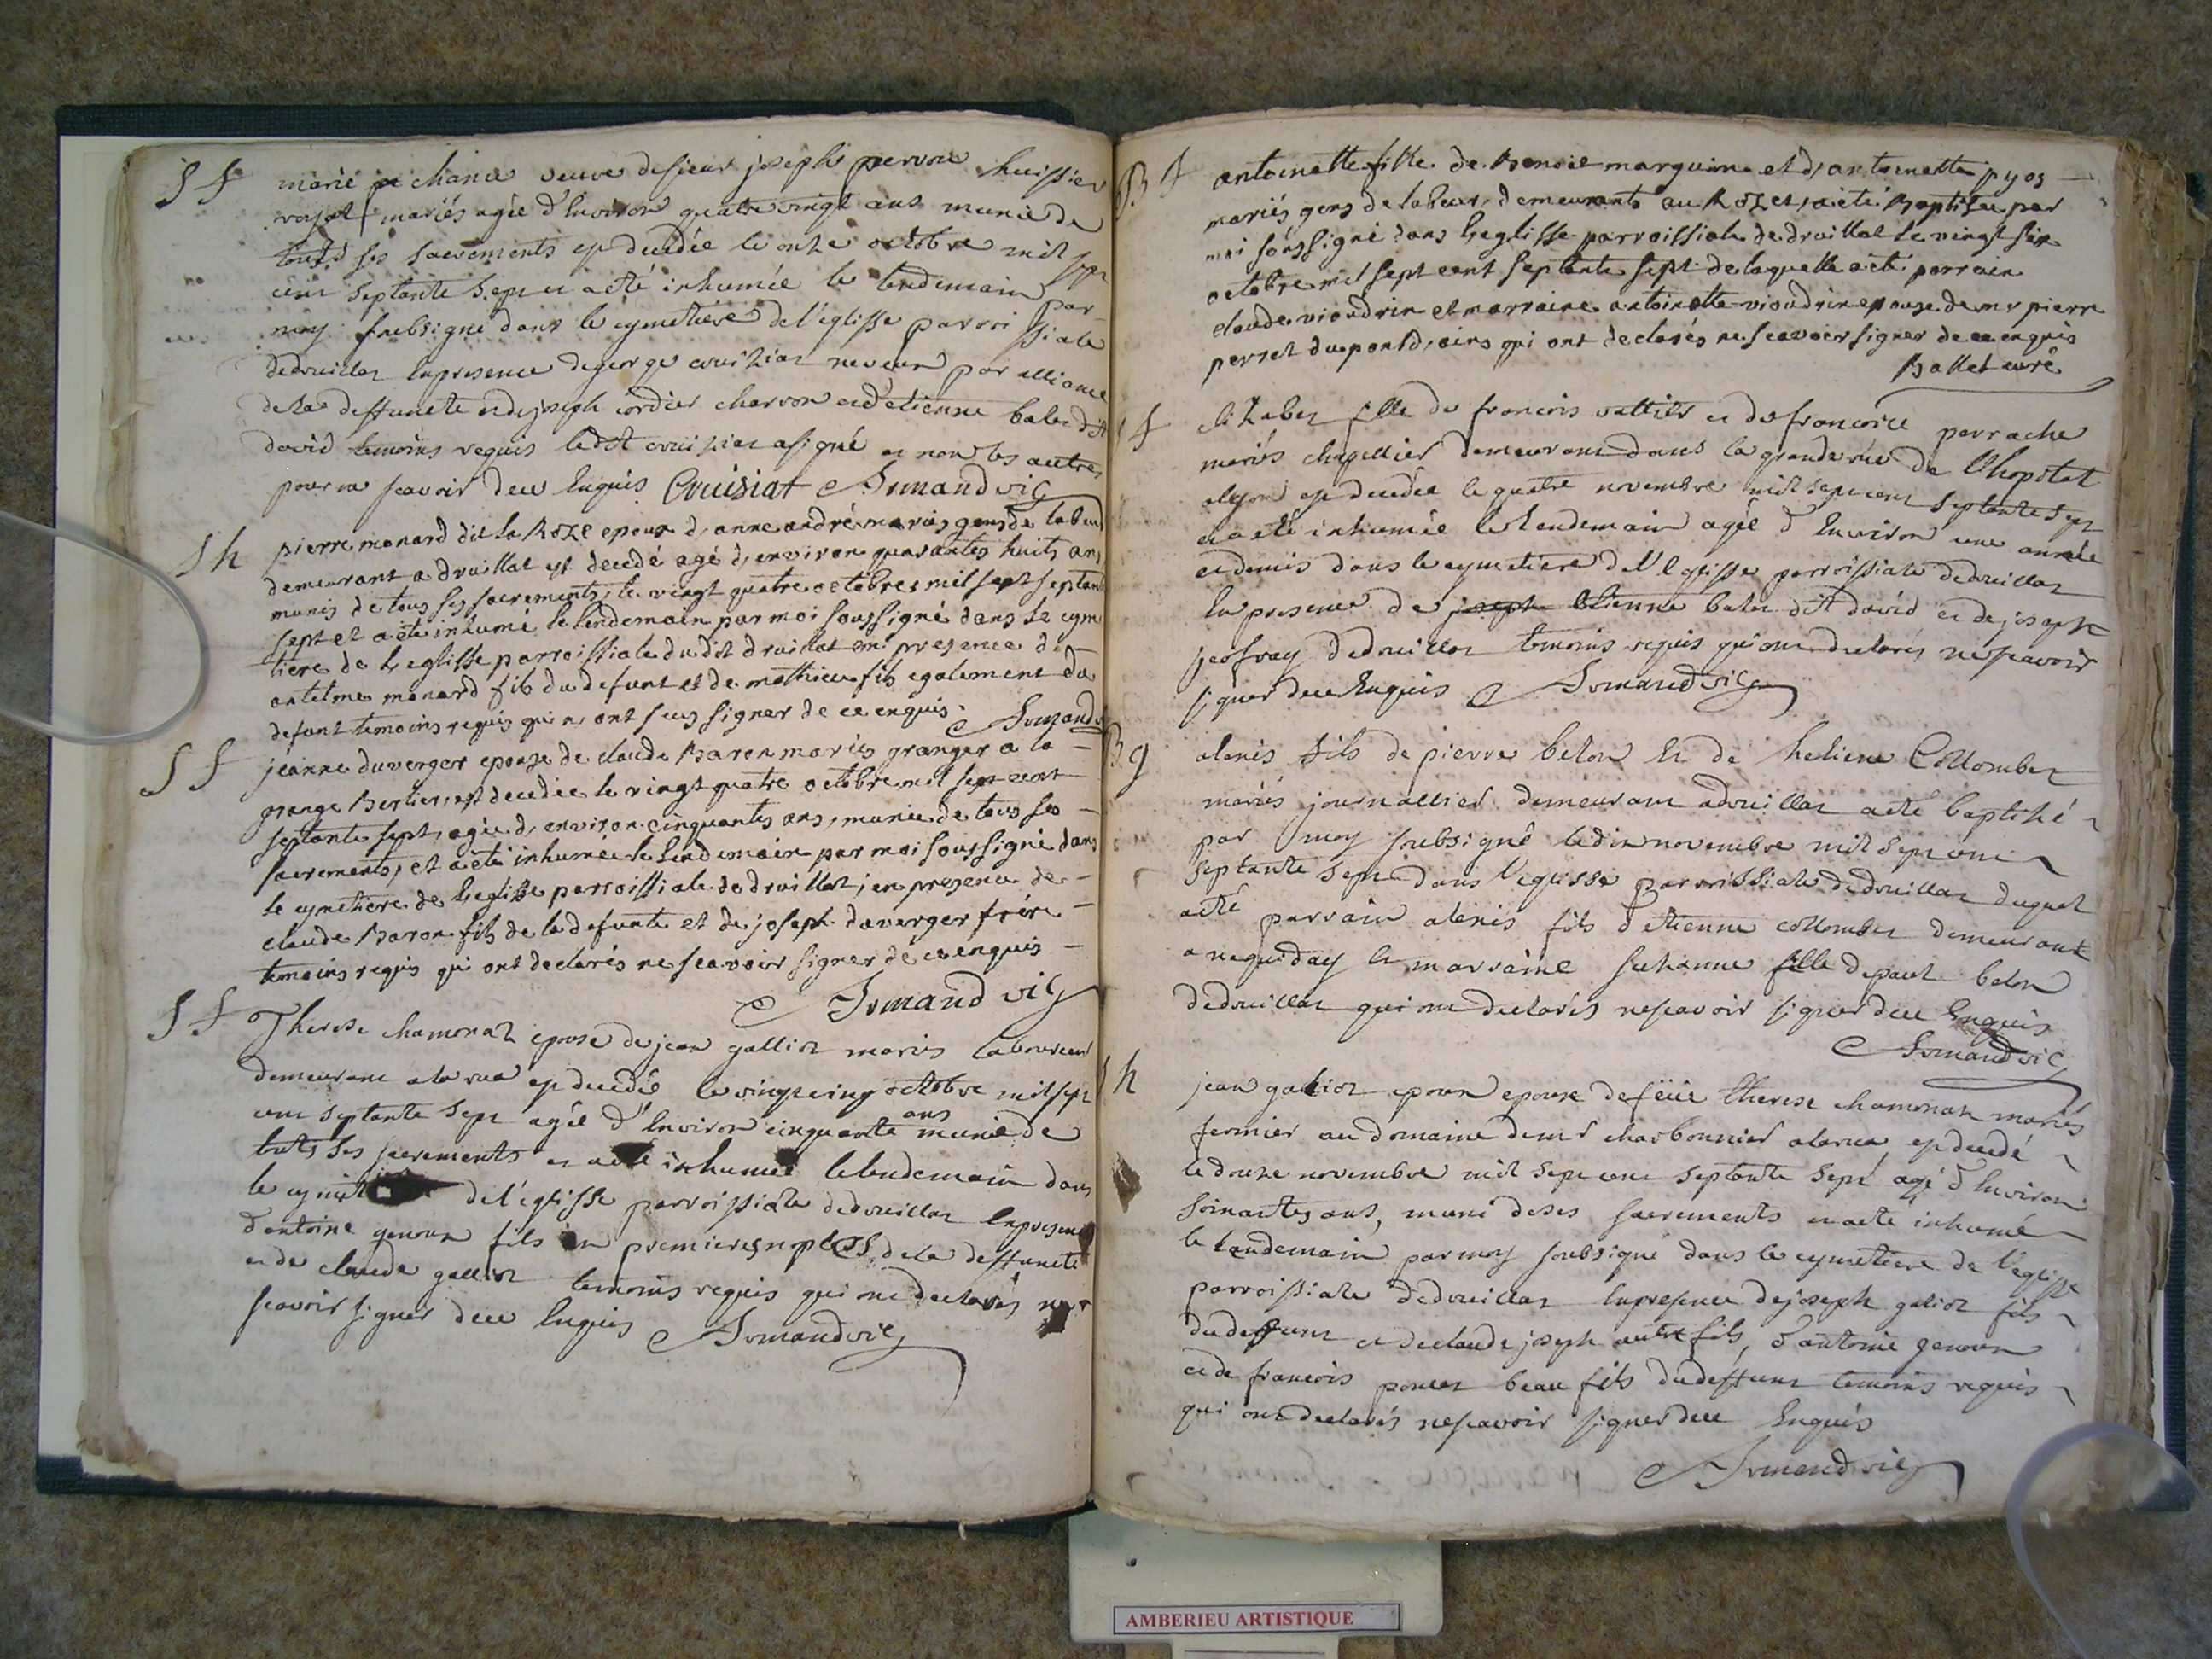 S f marie chanel veuve de sieur joseph pervon huissier
royal mariés agée d'Environ quatre vingt ans munie de
touts ses sacrements est decedée le onze octobre mil sept
cent septante sept et a été inhumée le lendemain par
moy soubsigné dans le cymetiere de l'eglisse parroissiale
dedruillat Enpresence degeorge cruiziat neveur par alliance
dela deffuncte et dejoseph cordier charron et d'etienne bales dit
david temoins requis ledit cruiziat asigné et non les autres
pour ne scavoir dece Enquis Cruisiat Armand vic
S h pierre monard dit la Roze epoux d, anne andré mariés gens de labeur
demeurant a druillat est decedé agé d, environ quarantes huits ans
munis de tous ses sacrements, le vingt quatre octobres mil sept septante
sept et a été inhumé le lendemain par moi soussigné dans le cyme
tiere de l'eglisse parroissiale du dit druillat en presence d, -
antelme monard fils du defunt et de mathieu fils egalement du
defunt temoins requis qui n, ont sçus signer de ce enquis. Armand vic
S f jeanne duverger epouse de claude Baron mariés granger a la -
grange Berlier, est decedée le vingt quatre octobre mil sept cent -
septante sept, agée d, environ cinquantes ans, munie de tous ses -
sacrements, et a été inhumée le lendemain par moi soussigné dans
le cymetiere de l'eglisse parroissiale de druillat, en presence de -
claude Baron fils de la defunte et de joseph duverger frere -
temoins requis qui ont declarés ne scavoir signer de ce enquis -
Armand vic
S f Therese chamonat epouse de jean galliot mariés laboureur
demeurant ala rua est decedée le vingt cinq octobre mil sept
cent septante sept agée d'Environ cinquante ans munie de
touts ses sacrements et a été inhumée lelendemain dans
le cymet de l'eglisse parroissiale dedruillat Enpresence
d'antoine genoux fils en premieres nopces de la deffuncte
et de claude galliot temoins requis qui ont declarés ne
scavoir signer dece Enquis Armand vic
B f antoinette fille de Benoit marguin et d, antoinette pyos -
mariés gens de labeur, demeurants au Rozet, a été Baptisée par
moi soussigné dans l'eglisse parroissiale de druillat le vingt six
octobre mil sept cent septante sept de laquelle a été parrain
claude vioudrin et marraine antoinette vioudrin epouse de mr pierre
perret du pont d, ains qui ont declarés ne scavoir signer de ce enquis
Ballet curé
S f elizabet fille de francois vattier et de francoise perrache
mariés chapellier demeurant dans la grande rüe de l'hopital
alyon est decedée le quatre novembre mil sept cent septante sept
et a été inhumée le lendemain agée d'Environ une année
et demis dans le cymetiere de l'eglisse parroissiale dedruillat
En presence de joseph Etienne bales dit david et de joseph
jeofray dedruillat temoins requis qui ont declarés ne scavoir
signer dece Enquis Armand vic
B g alexis fils de pierre belon Et de heliene Collombet
mariés journallier demeurant adruillat a été baptizé
par moy soubsigné ledix novembre mil sept cent
septante sept dans l'eglisse parroissiale dedruillat duquel
aeté parrain alexis fils d'etienne collombet demeurant
a negueday Et marraine suzanne fille depaul belon
dedruillat qui ont declarés nescavoir signer dece Enquis
Armand vic
S h jean galiot epoux epouse defeüe therese chamonat mariés
fermier au domaine demr charbonnier alarua, est decedé
le douze novembre mil sept cent septante sept agé d'Environ
soixantes ans, muni deses sacrements et a été inhumé
le lendemain par moy soubsigné dans le cymetiere de l'eglisse
parroissiale dedruillat Enpresence dejoseph galiot fils
dudeffunt et declaude joseph autre fils, d'antoine genoux
et de francois poncet beau fils dudeffunt temoins requis
qui ont declarés nescavoir signer dece Enquis
Armand vic
AMBERIEU ARTISTIQUE